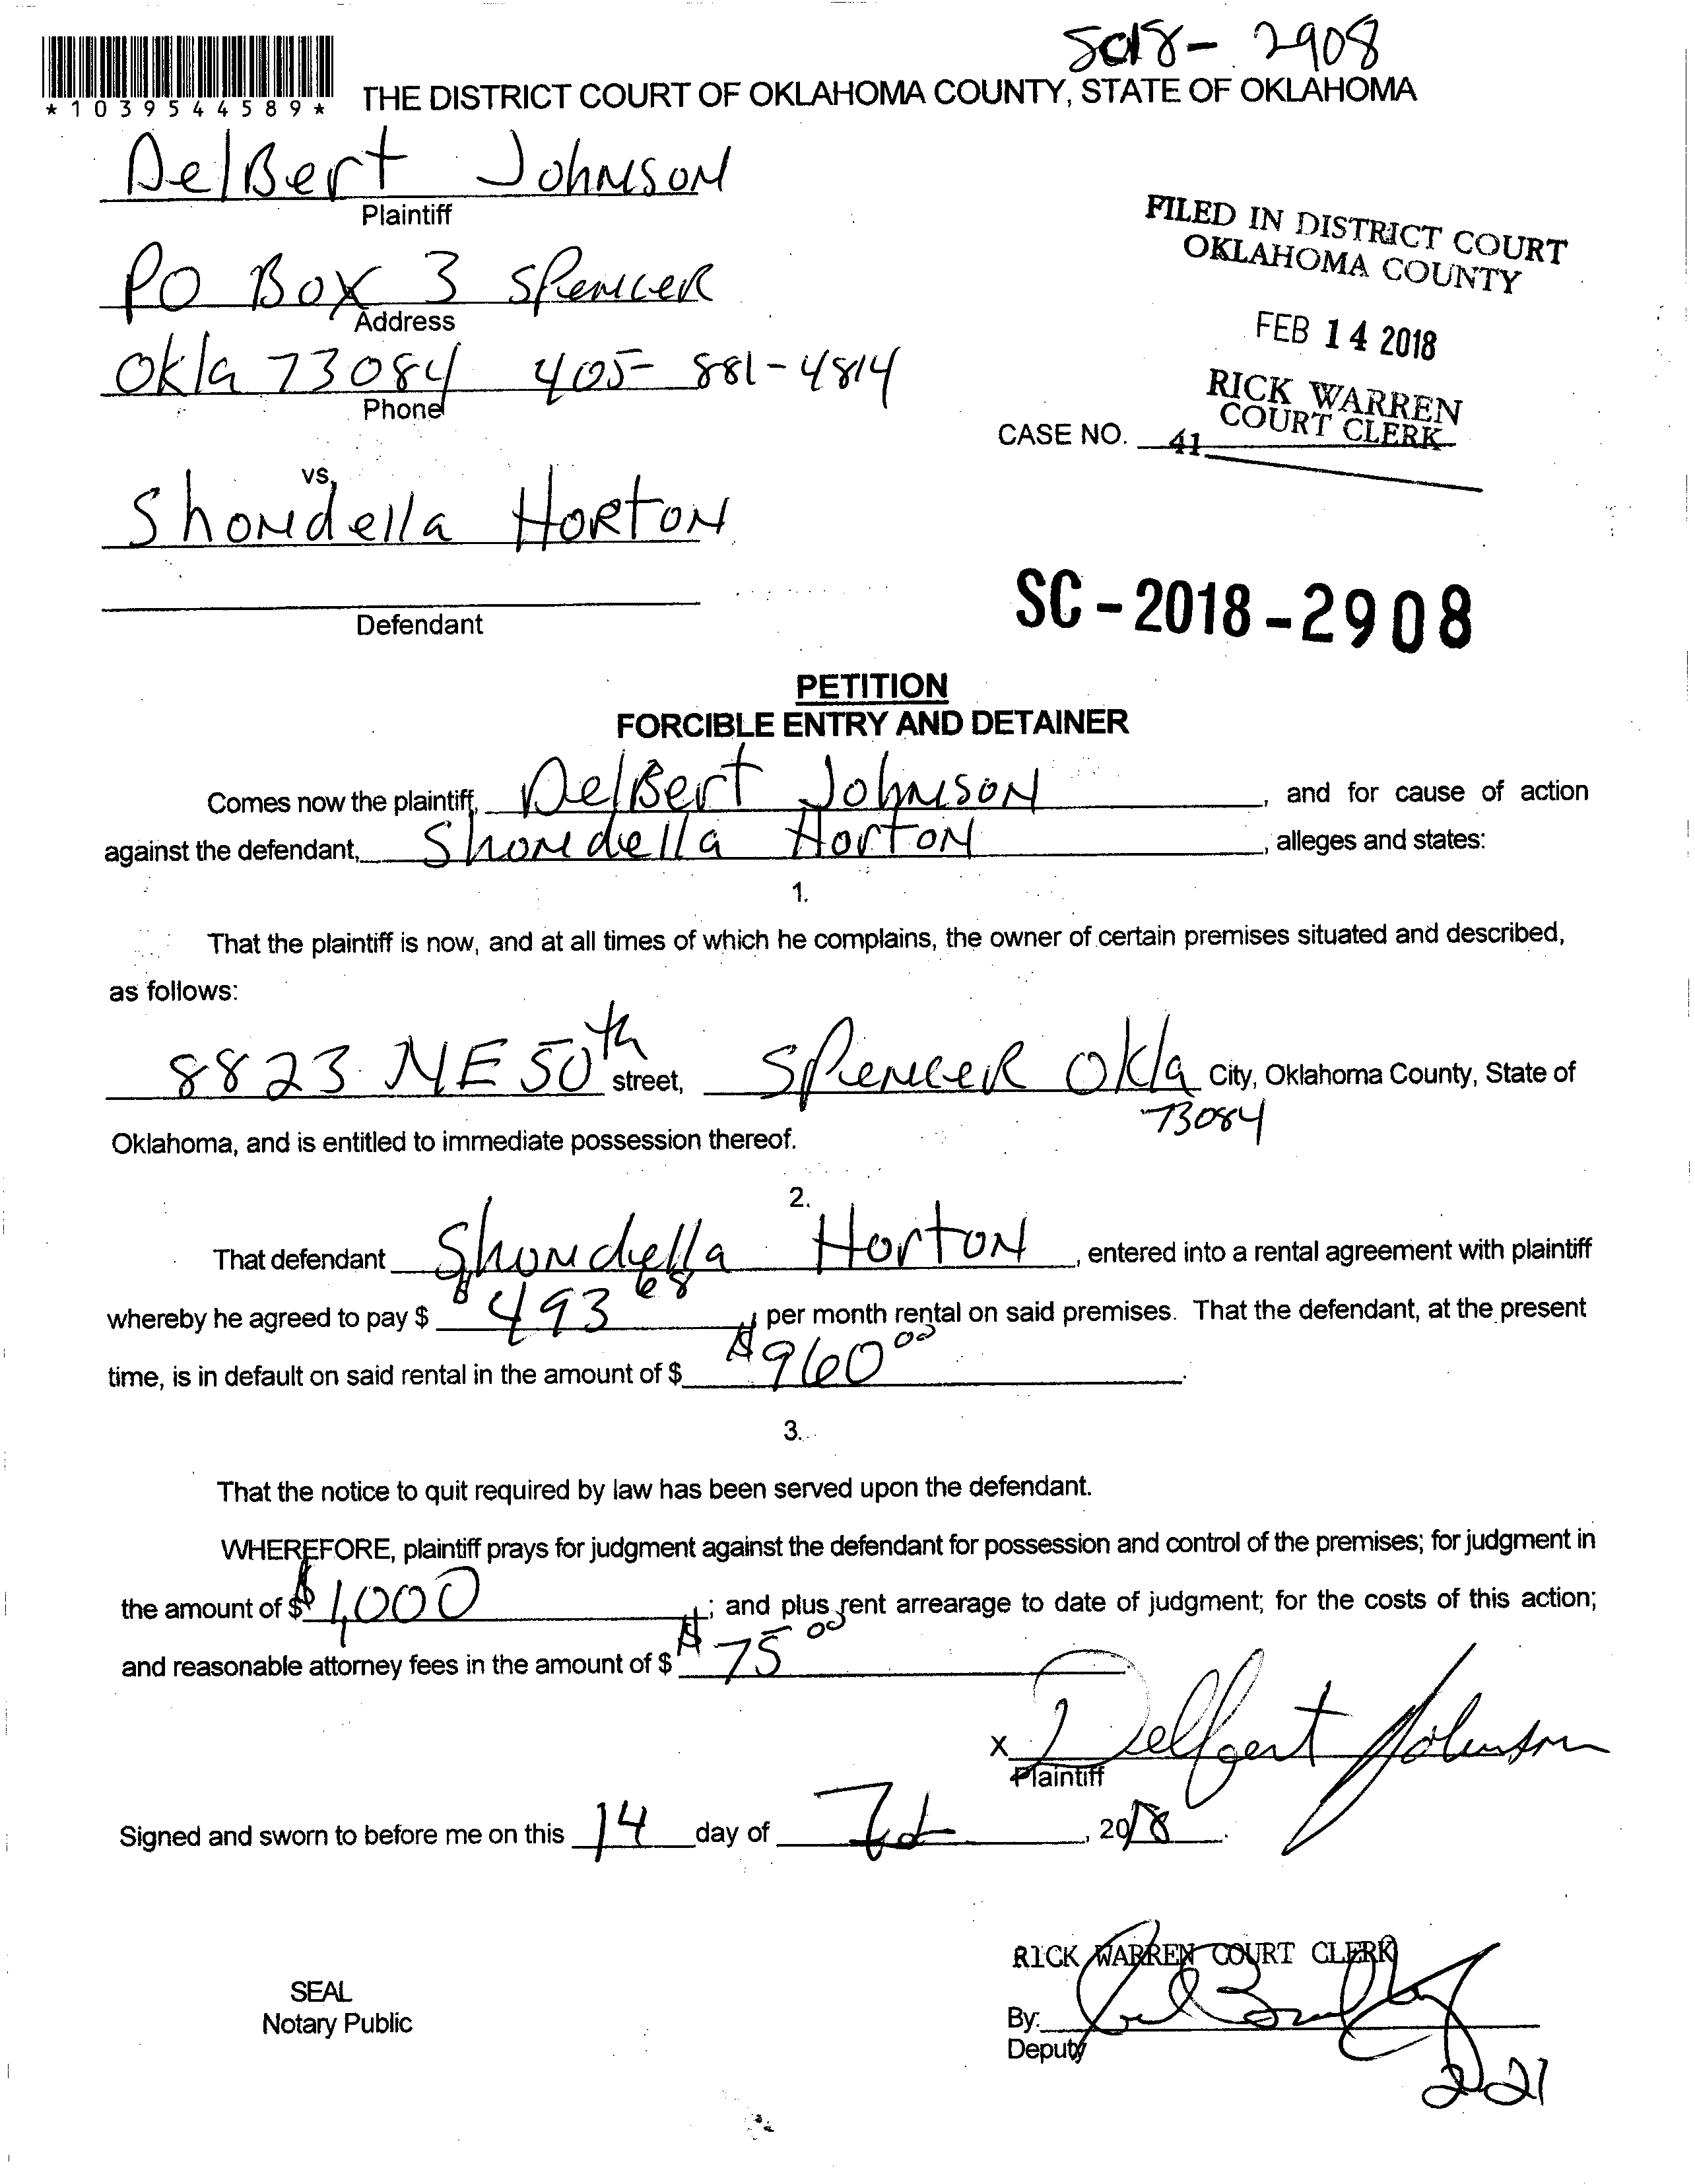 SC18- 2908
*1039544589*
THE DISTRICT COURT OF OKLAHOMA COUNTY, STATE OF OKLAHOMA
DelBert Johnson
Plaintiff
PO Box 3 Spencer
Address
Okla 73084 405- 881-4814
Phone
FILED IN DISTRICT COURT
OKLAHOMA COUNTY
FEB 14 2018
RICK WARREN
COURT CLERK
CASE NO. 41
vs.
Shondella Horton
Defendant
SC-2018-2908
PETITION
FORCIBLE ENTRY AND DETAINER
Comes now the plaintiff, DelBert Johnson, and for cause of action
against the defendant, Shondella Horton, alleges and states:
1.
That the plaintiff is now, and at all times of which he complains, the owner of certain premises situated and described,
as follows:
8823 NE 50th street, Spencer Okla City, Oklahoma County, State of
73084
Oklahoma, and is entitled to immediate possession thereof.
2.
That defendant Shondella Horton, entered into a rental agreement with plaintiff
whereby he agreed to pay $ $493 68, per month rental on said premises. That the defendant, at the present
time, is in default on said rental in the amount of $ $960 00.
3.
That the notice to quit required by law has been served upon the defendant.
WHEREFORE, plaintiff prays for judgment against the defendant for possession and control of the premises; for judgment in
the amount of $ $1,000; and plus rent arrearage to date of judgment; for the costs of this action;
and reasonable attorney fees in the amount of $ $75 00
X Delbert Johnson
Plaintiff
Signed and sworn to before me on this 14 day of Feb, 2018.
RICK WARREN COURT CLERK
SEAL
Notary Public
By:
Deputy
2-21